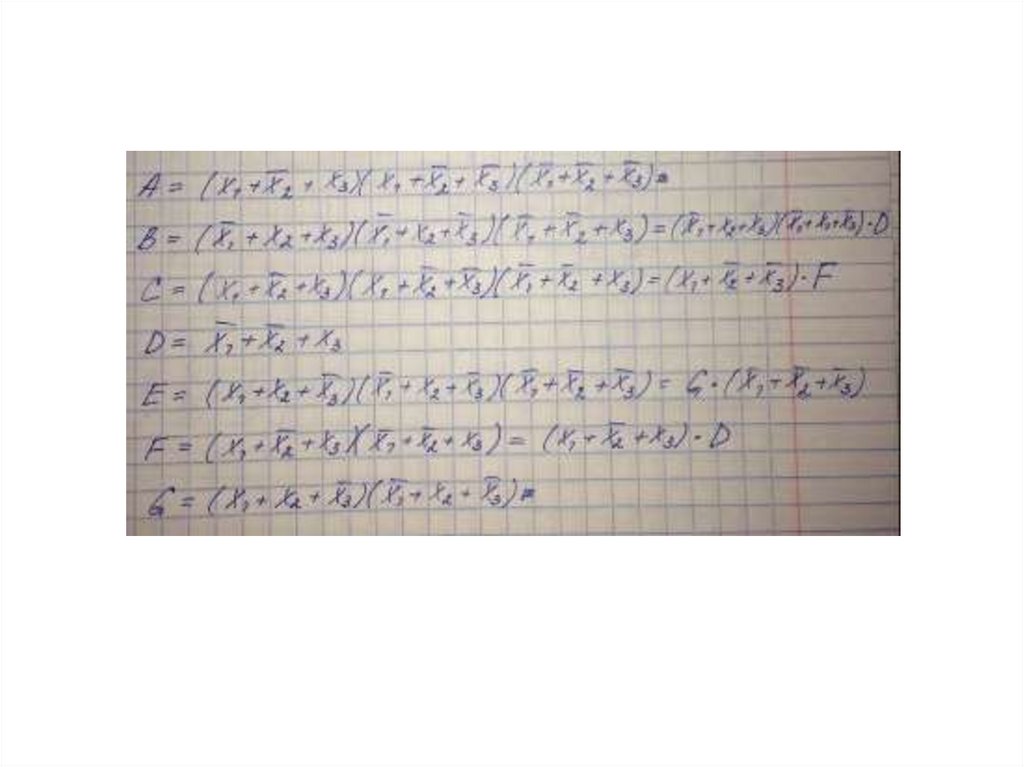 A = (x₁ + x̄₂ + x₃)(x₁ + x̄₂ + x̄₃)(x̄₁ + x̄₂ + x̄₃) =
B = (x̄₁ + x₂ + x₃)(x̄₁ + x₂ + x̄₃)(x̄₁ + x̄₂ + x₃) = (x̄₁ + x₂ + x₃)(x̄₁ + x₂ + x̄₃) · D
C = (x₁ + x̄₂ + x₃)(x₁ + x̄₂ + x̄₃)(x̄₁ + x̄₂ + x₃) = (x₁ + x̄₂ + x̄₃) · F
D = x̄₁ + x̄₂ + x₃
E = (x₁ + x₂ + x̄₃)(x̄₁ + x₂ + x̄₃)(x̄₁ + x̄₂ + x̄₃) = G · (x̄₁ + x̄₂ + x̄₃)
F = (x₁ + x̄₂ + x₃)(x̄₁ + x̄₂ + x₃) = (x₁ + x̄₂ + x₃) · D
G = (x₁ + x₂ + x̄₃)(x̄₁ + x₂ + x̄₃) =